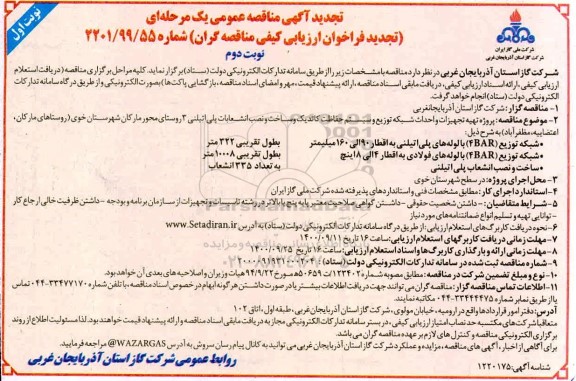 نوبت اول
تجدید آگهی مناقصه عمومی یک مرحله‌ای
(تجدید فراخوان ارزیابی کیفی مناقصه گران) شماره ۲۲۰۱/۹۹/۵۵
نوبت دوم
شرکت ملی گاز ایران
شرکت گاز استان آذربایجان غربی
شرکت گاز استان آذربایجان غربی در نظر دارد مناقصه با مشخصات زیر را از طریق سامانه تدارکات الکترونیکی دولت (ستاد) برگزار نماید. کلیه مراحل برگزاری مناقصه (دریافت استعلام
ارزیابی کیفی، ارائه اسناد ارزیابی کیفی، دریافت مابقی اسناد مناقصه، ارائه پیشنهاد قیمت، مهر و امضای اسناد مناقصه، بازگشایی پاکت ها) بصورت الکترونیکی و از طریق درگاه سامانه تدارکات
الکترونیکی دولت (ستاد) انجام خواهد گرفت.
۱- مناقصه گزار: شرکت گاز استان آذربایجانغربی
۲- موضوع مناقصه: پروژه تهیه تجهیزات و احداث شبکه توزیع و سیستم حفاظت کاتدیک و ساخت و نصب انشعابات پلی اتیلنی ۳ روستای محور مارکان شهرستان خوی (روستاهای مارکان،
اعتمابیه، مظفرآباد) به شرح ذیل:
شبکه توزیع (4BAR) با لوله های پلی اتیلنی به اقطار ۹۰ الی ۱۶۰ میلیمتر بطول تقریبی ۳۲۲ متر
شبکه توزیع (4BAR) با لوله های فولادی به اقطار ۴ الی ۸ اینچ بطول تقریبی ۱۰۰۰۸ متر
ساخت و نصب انشعاب پلی اتیلنی به تعداد ۳۳۵ انشعاب
۳- محل اجرای پروژه: در سطح شهرستان خوی
۴- استاندارد اجرای کار: مطابق مشخصات فنی و استانداردهای پذیرفته شده شرکت ملی گاز ایران
۵- شرایط متقاضیان: - داشتن شخصیت حقوقی - داشتن گواهی صلاحیت معتبر پایه پنج یا بالاتر در رشته تاسیسات و تجهیزات از سازمان برنامه و بودجه - داشتن ظرفیت خالی ارجاع کار
- توانایی تهیه و تسلیم انواع ضمانتنامه های مورد نیاز
۶- نحوه دریافت کاربرگ های استعلام ارزیابی: از طریق درگاه سامانه تدارکات الکترونیکی دولت (ستاد) به آدرس www.Setadiran.ir
۷- مهلت زمانی دریافت کاربرگهای استعلام ارزیابی: ساعت ۱۶ تاریخ ۱۴۰۰/۰۹/۱۱
۸- مهلت زمانی ارائه و بارگذاری کاربرگ ها و اسناد استعلام ارزیابی: ساعت ۱۶ تاریخ ۱۴۰۰/۰۹/۲۵
۹- شماره مناقصه ثبت شده در سامانه تدارکات الکترونیکی دولت (ستاد):
۱۰- نوع و مبلغ تضمین شرکت در مناقصه: مطابق مصوبه شماره ۱۲۳۴۰۲/ت۵۰۶۵۹ه مورخ ۹۴/۹/۲۲ هیات وزیران و اصلاحیه های بعدی آن خواهد بود.
۱۱- اطلاعات تماس مناقصه گزار: مناقصه گران می توانند جهت دریافت اطلاعات بیشتر یا در صورت داشتن هر گونه ابهام در خصوص اسناد مناقصه، با تلفن شماره ۳۳۴۷۷۱۷۰-۰۴۴ تماس
یا از طریق نمابر شماره ۳۳۴۴۴۴۷۵-۰۴۴ مکاتبه نمایند.
آدرس: دفتر امور قراردادها واقع در ارومیه، خیابان مولوی، شرکت گاز استان آذربایجان غربی، طبقه اول، اتاق ۱۰۲
متعاقبا شرکت های مکتسبه حد نصاب امتیاز ارزیابی کیفی، در بستر سامانه تدارکات الکترونیکی مجاز به دریافت مابقی اسناد مناقصه و ارائه پیشنهاد قیمت خواهند بود. لذا مسئولیت اطلاع از روند
برگزاری الکترونیکی مناقصه و کنترل های لازم بر عهده مناقصه گران می باشد.
برای آگاهی از اخبار، آگهی های مناقصه، مزایده و عملکرد شرکت گاز استان آذربایجان غربی می توانید به کانال پیام رسان سروش به آدرس WAZARGAS@ مراجعه فرمایید.
روابط عمومی شرکت گاز استان آذربایجان غربی
شناسه آگهی: ۱۲۲۰۱۷۵